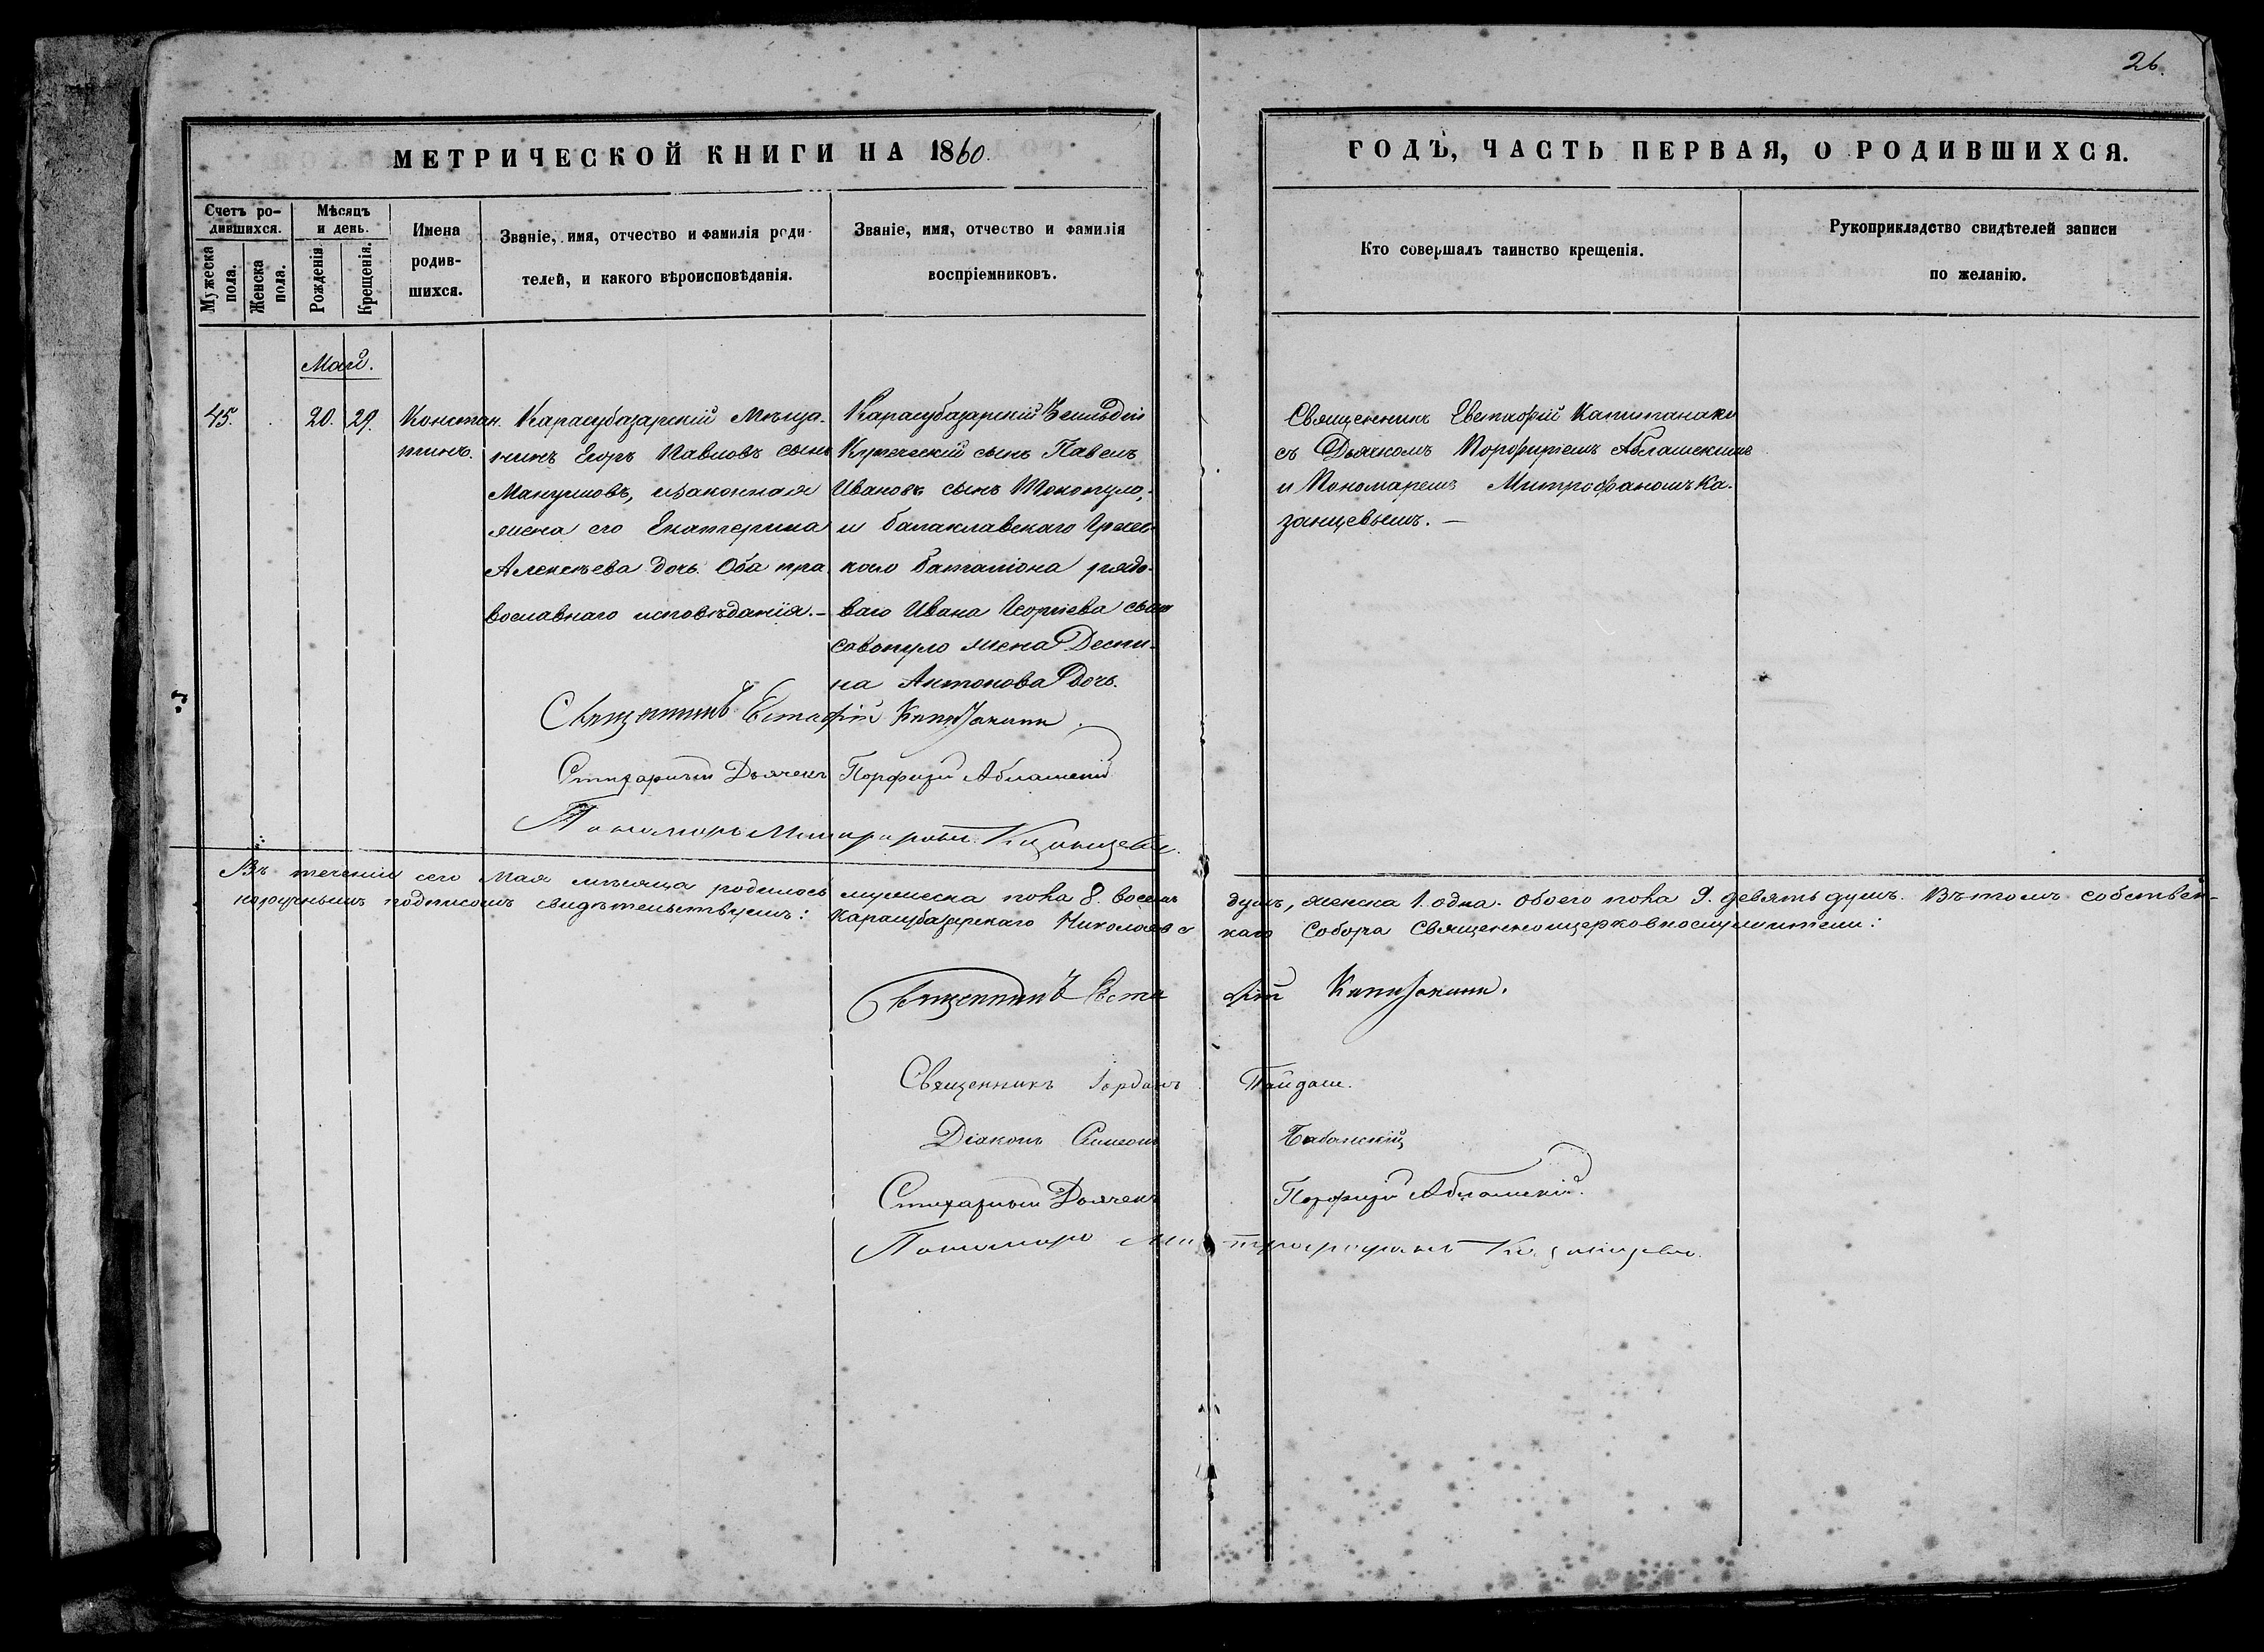 26.
МЕТРИЧЕСКОЙ КНИГИ НА 1860.
ГОДЪ, ЧАСТЬ ПЕРВАЯ, О РОДИВШИХСЯ.
Счетъ ро-
дившихся.
Мужеска
пола.
Женска
пола.
Мѣсяцъ
и день.
Рожденія
Крещенія.
Имена
родив-
шихся.
Званіе, имя, отчество и фамилія роди-
телей, и какого вѣроисповѣданія.
Званіе, имя, отчество и фамилія
воспріемниковъ.
Кто совершалъ таинство крещенія.
Рукоприкладство свидѣтелей записи
по желанію.
Май.
45.
20.
29.
Констан-
тинъ.
Карасубазарскій Мѣща-
нинъ Егоръ Павловъ сынъ
законная
жена его Екатерина
Алексѣева дочь. Оба пра-
вославнаго исповѣданія.–
Карасубазарскій
Купеческій сынъ Павелъ
Ивановъ сынъ
и балаклавскаго Гречес-
каго баталіона рядо-
ваго Ивана Георгіева сына
савопуло жена Деспи-
на Антонова дочь.
Священникъ Евстафій Капитанаки
съ Дьячкомъ Порфиріемъ Аблашскимъ
и Пономаремъ Митрофаномъ Ка-
занцевымъ. –
Священникъ Евстафій Капитанаки.
Стихарный Дьячекъ Порфирій Аблашскій
Пономарь Митрофанъ Казанцевъ.
Въ теченіи сего Мая мѣсяца родилось мужеска пола 8. восемь душъ, женска 1. одна. Обоего пола 9. девять душъ. Въ томъ собствен-
норучнымъ подписомъ свидѣтельствуемъ: Карасубазарскаго Николаевскаго Собора Священноцерковнослужители:
Священникъ Евстафій Капитанаки.
Священникъ Іорданъ Пайдаши.
Діаконъ Симеонъ
Стихарный Дьячекъ Порфирій Аблашскій.
Пономарь Митрофанъ Казанцевъ.